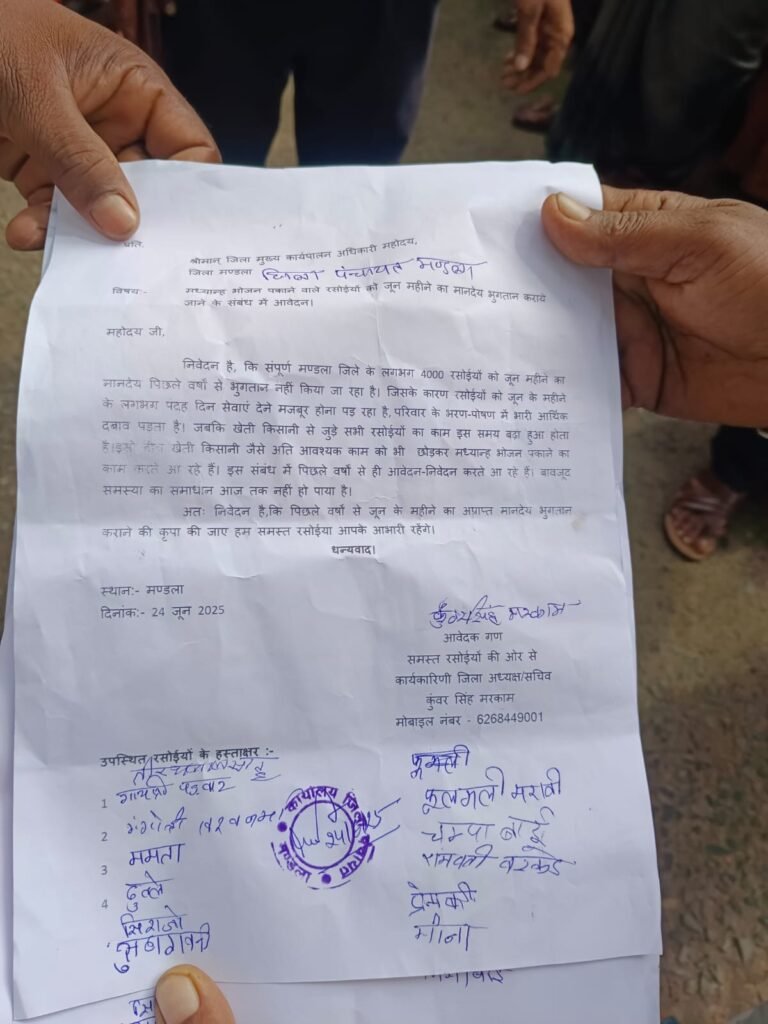 प्रति,
श्रीमान् जिला मुख्य कार्यपालन अधिकारी महोदय,
जिला मण्डला जिला पंचायत मण्डला
विषय:- मध्यान्ह भोजन पकाने वाले रसोईयों को जून महीने का मानदेय भुगतान कराये
जाने के संबंध में आवेदन।
महोदय जी,
निवेदन है, कि संपूर्ण मण्डला जिले के लगभग 4000 रसोईयों को जून महीने का
मानदेय पिछले वर्षा से भुगतान नहीं किया जा रहा है। जिसके कारण रसोईयों को जून के महीने
के लगभग पंद्रह दिन सेवाएं देने मजबूर होना पड़ रहा है, परिवार के भरण-पोषण में भारी आर्थिक
दबाव पड़ता है। जबकि खेती किसानी से जुड़े सभी रसोईयों का काम इस समय बढ़ा हुआ होता
है। खेती किसानी जैसे अति आवश्यक काम को भी छोड़कर मध्यान्ह भोजन पकाने का
काम करते आ रहे हैं। इस संबंध में पिछले वर्षा से ही आवेदन-निवेदन करते आ रहे हैं। बावजूद
समस्या का समाधान आज तक नहीं हो पाया है।
अतः निवेदन है,कि पिछले वर्षा से जून के महीने का अप्राप्त मानदेय भुगतान
कराने की कृपा की जाए हम समस्त रसोईया आपके आभारी रहेंगे।
धन्यवाद।
स्थान:- मण्डला
दिनांक:- 24 जून 2025
आवेदक गण
समस्त रसोईयों की ओर से
कार्यकारिणी जिला अध्यक्ष/सचिव
कुंवर सिंह मरकाम
मोबाइल नंबर - 6268449001
उपस्थित रसोईयों के हस्ताक्षर :-
1
2
3 ममता
4
फूलमली मरावी
चम्पा बाई
मीना
कार्यालय जिला पंचायत मण्डला